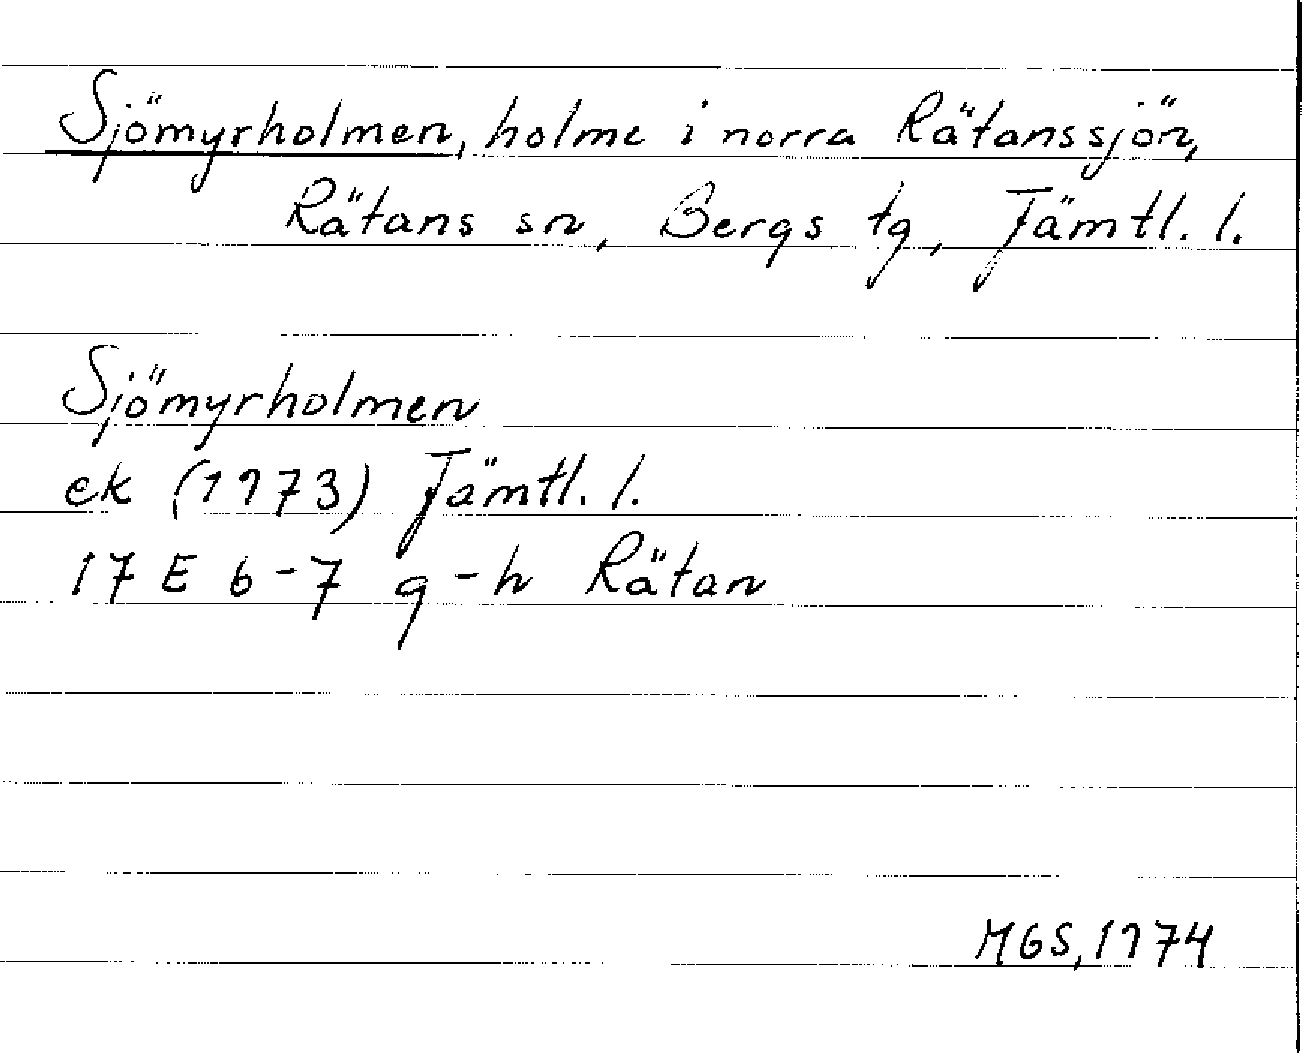 Sjömyrholmen, holme i norra Rätanssjön,
Rätans sn, Bergs tg, Jämtl. l.
Sjömyrholmen
ek (1973) Jämtl. l.
17 E 6-7 g-h Rätan
MGS, 1974